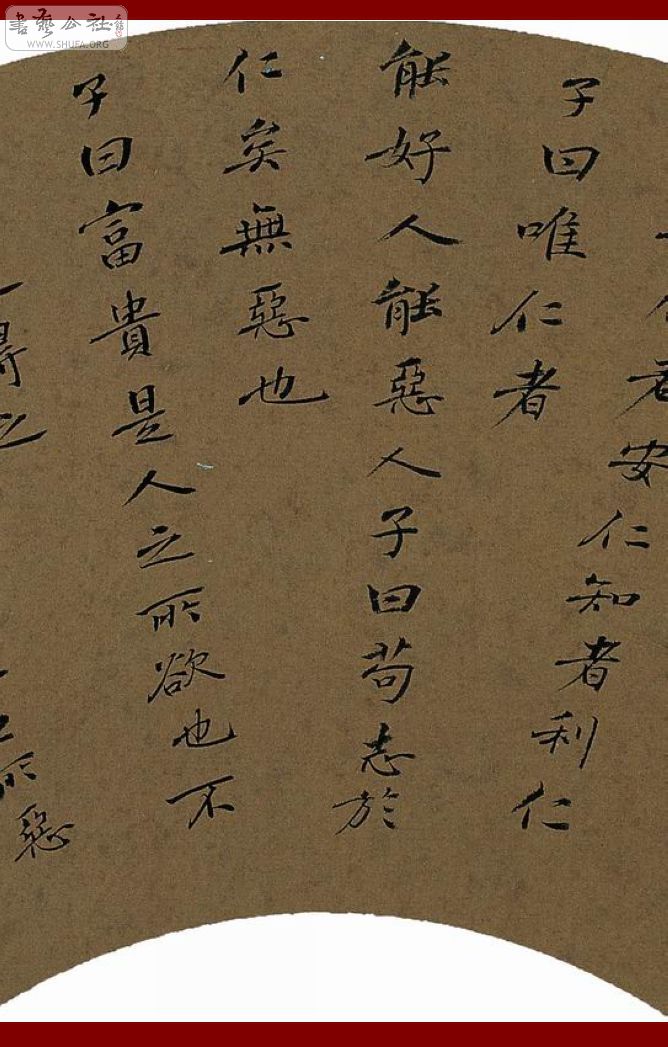 書藝公社
WWW.SHUFA.ORG
仁者安仁知者利仁
子曰唯仁者
能好人能惡人子曰苟志於
仁矣無惡也
子曰富貴是人之所欲也不
得之
之所惡